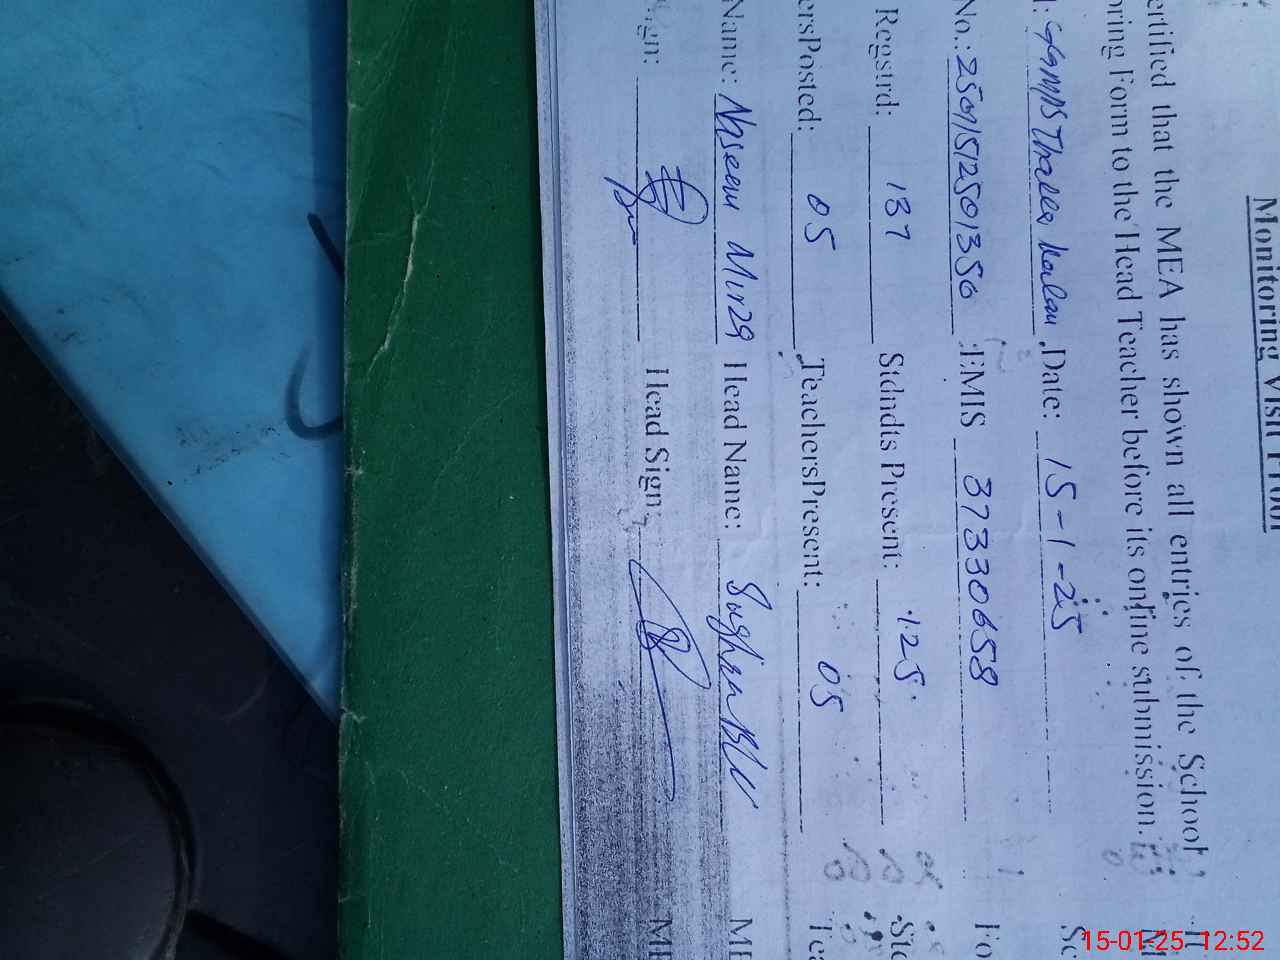 Monitoring Visit Proof
ertified that the MEA has shown all entries of the School
oring Form to the Head Teacher before its online submission.
l: GGMPS Thalla Kalan Date: 15-1-25
No.: EMIS 37330658
Regstrd: 137 Stdndts Present: 125
ersPosted: 05 TeachersPresent: 05
Name: Naseem Head Name:
Sign: Head Sign
Sc
Fo
Tea
15-01-25 12:52